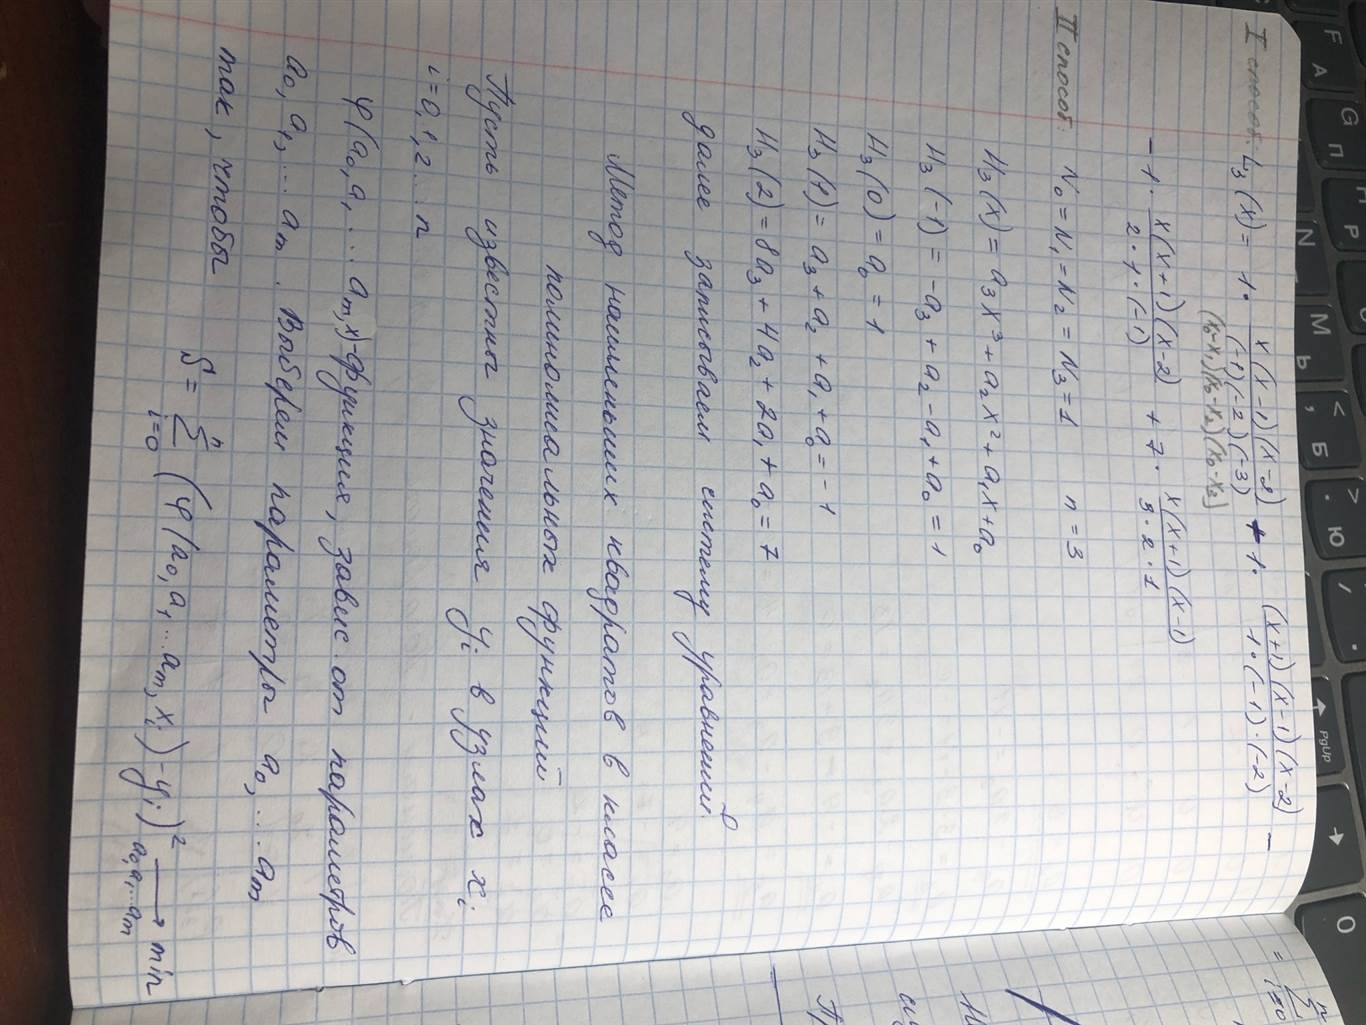 I способ. L₃(x) = 1 · x(x-1)(x-2)/(-1)(-2)(-3) + 1 · (x+1)(x-1)(x-2)/1·(-1)·(-2) -
(x₀-x₁)(x₀-x₂)(x₀-x₃)
- 1 · x(x+1)(x-2)/2·1·(-1) + 7 · x(x+1)(x-1)/3·2·1
II способ. N₀ = N₁ = N₂ = N₃ = 1 n = 3
H₃(x) = a₃x³ + a₂x² + a₁x + a₀
H₃(-1) = -a₃ + a₂ - a₁ + a₀ = 1
H₃(0) = a₀ = 1
H₃(1) = a₃ + a₂ + a₁ + a₀ = -1
H₃(2) = 8a₃ + 4a₂ + 2a₁ + a₀ = 7
далее записываем систему уравнений.
Метод наименьших квадратов в классе
полиномиальных функций
Пусть известны значения yᵢ в узлах xᵢ
i = 0, 1, 2 ... n
φ(a₀, a₁ ... aₘ, x) - функция, завис от параметров
a₀, a₁, ... aₘ. Выберем параметры a₀, ... aₘ
так, чтобы
S = Σⁿᵢ₌₀ (φ(a₀, a₁ ... aₘ, xᵢ) - yᵢ)² → min
a₀, a₁ ... aₘ